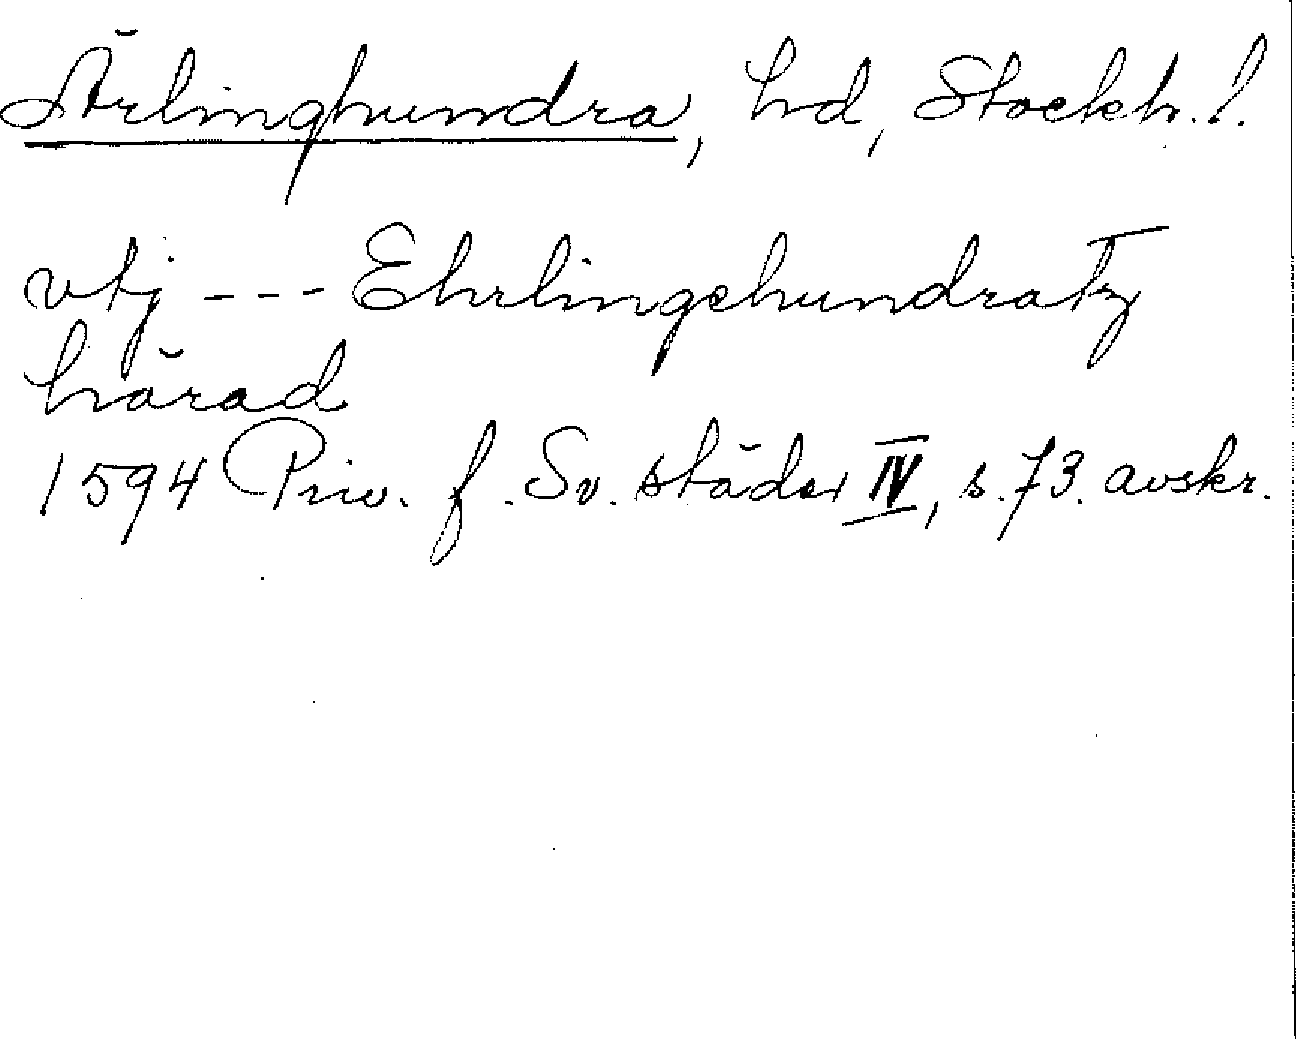 Ärlinghundra, hd, Stockh. l.
vtj --- Ehrlingehundratz
härad
1594 Priv. f. Sv. städer IV, s. 73. avskr.